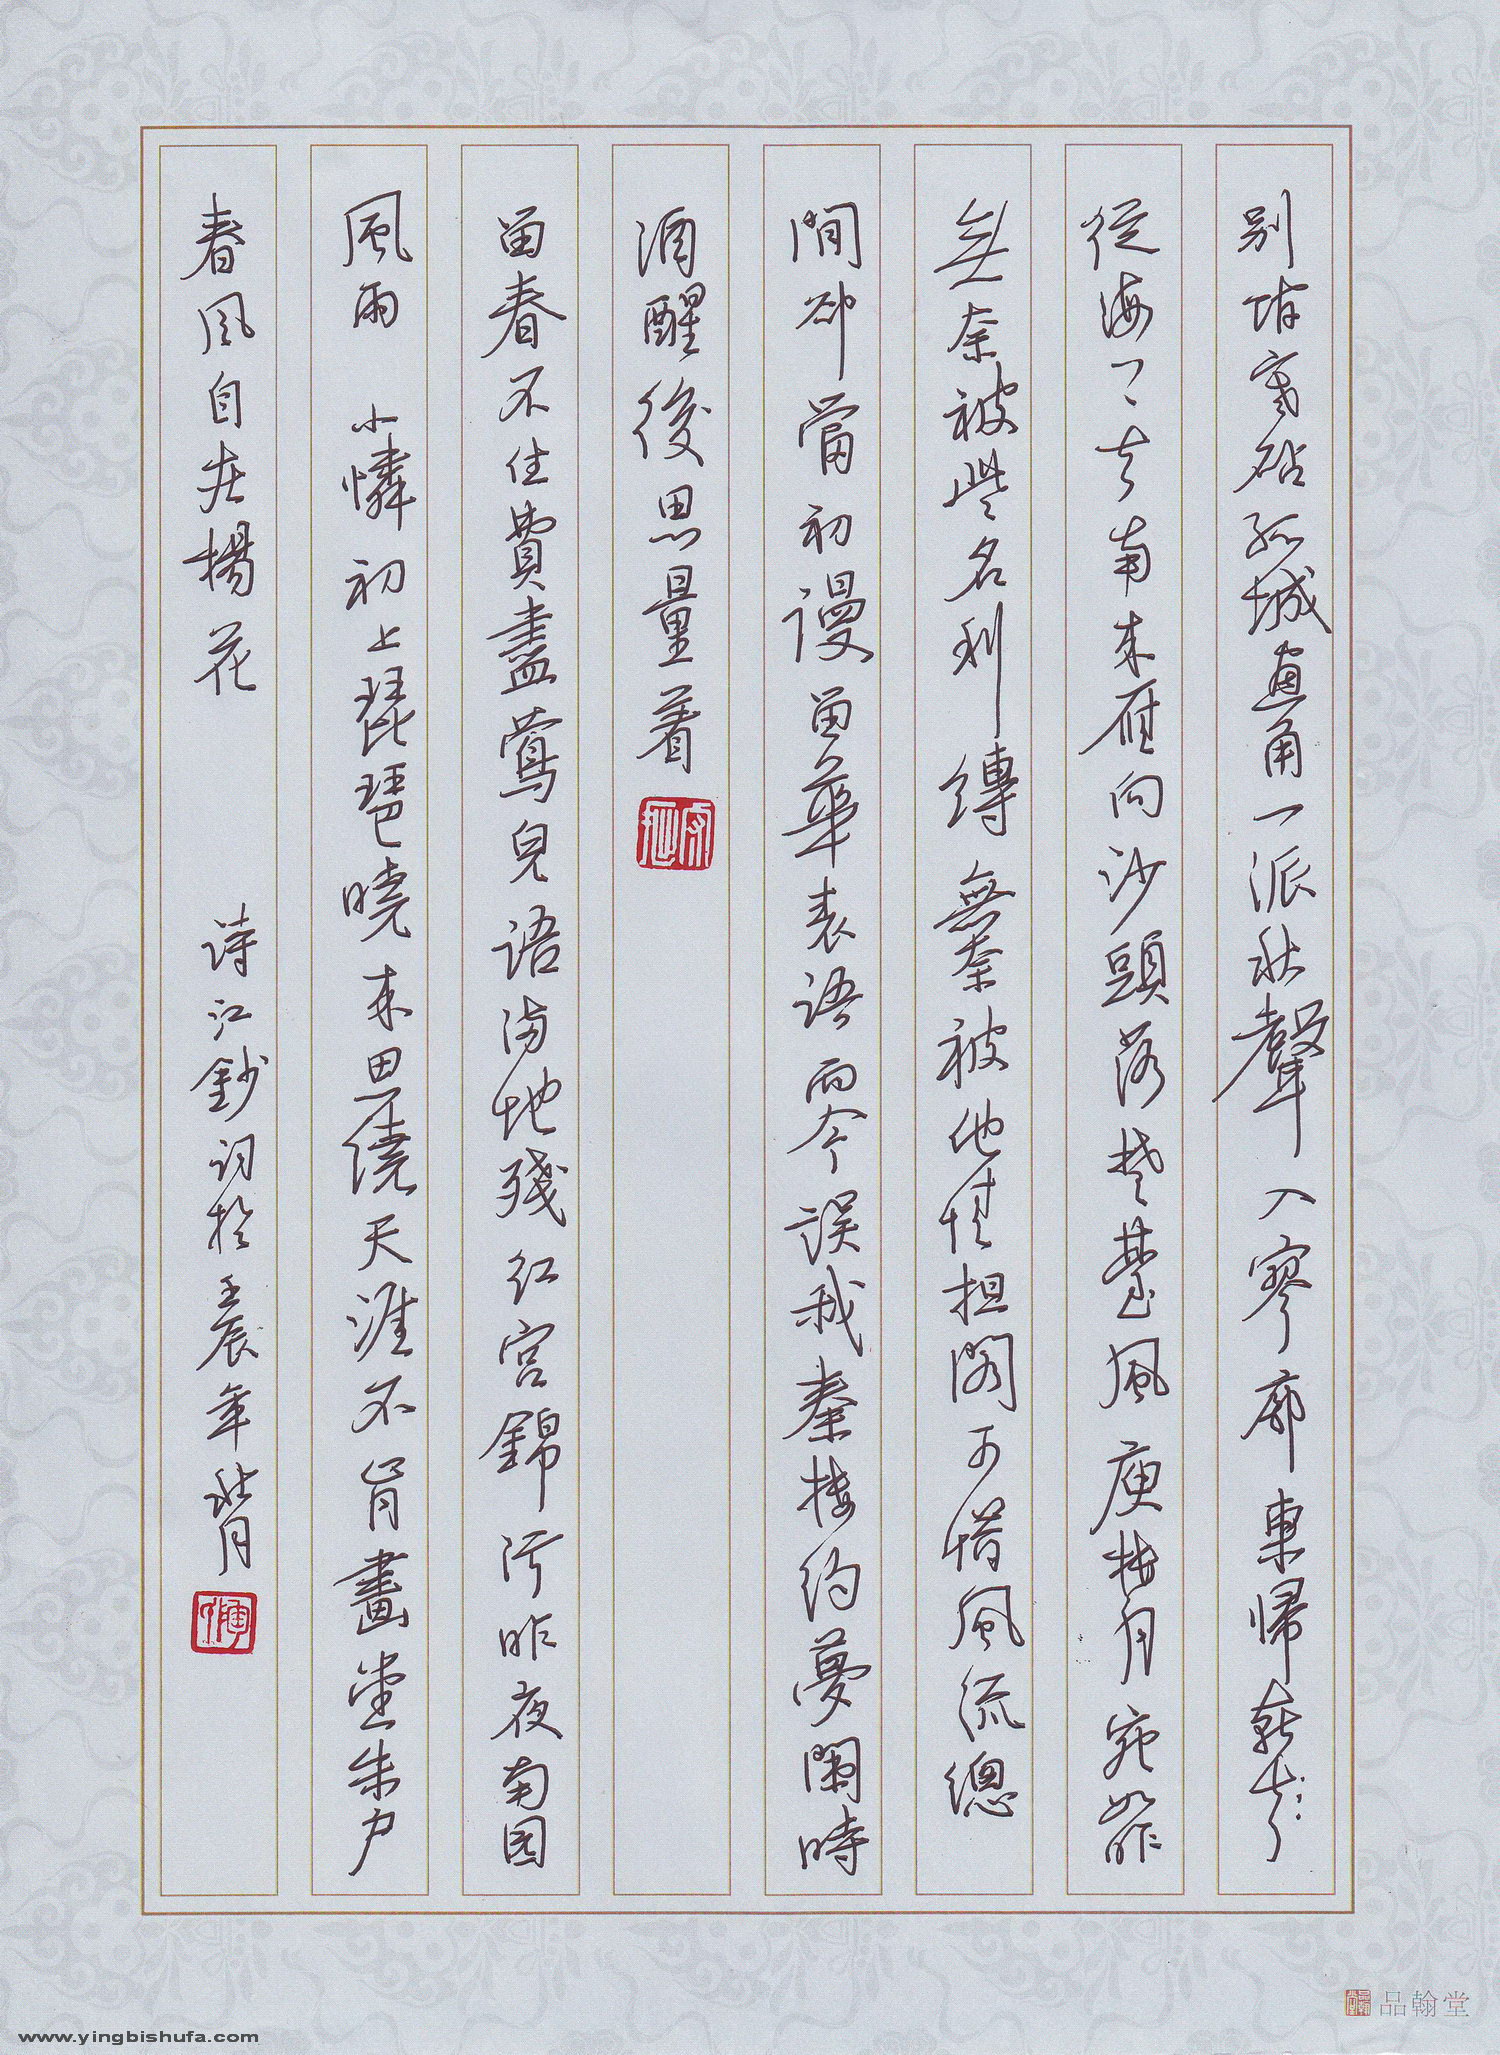 别馆寒砧孤城畫角一派秋聲入寥廓東歸燕去
從海上去南来雁向沙頭落楚臺風庾楼月宛如昨
無奈被些名利縛無奈被他情担阁可惜風流總
閒却當初謾留華表語而今誤我秦楼約夢闌時
酒醒後思量着
留春不住費盡鶯兒语满地殘红宫錦污昨夜南园
風雨 小憐初上琵琶曉来思繞天涯不肯畫堂朱户
春风自在楊花 诗江鈔词於壬辰年秋月
品翰堂
www.yingbishufa.com